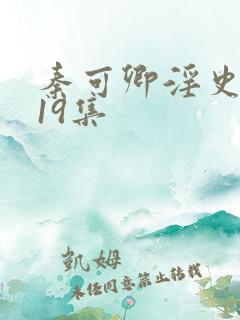 秦可卿淫史
19集
凱姆
未经同意禁止转载